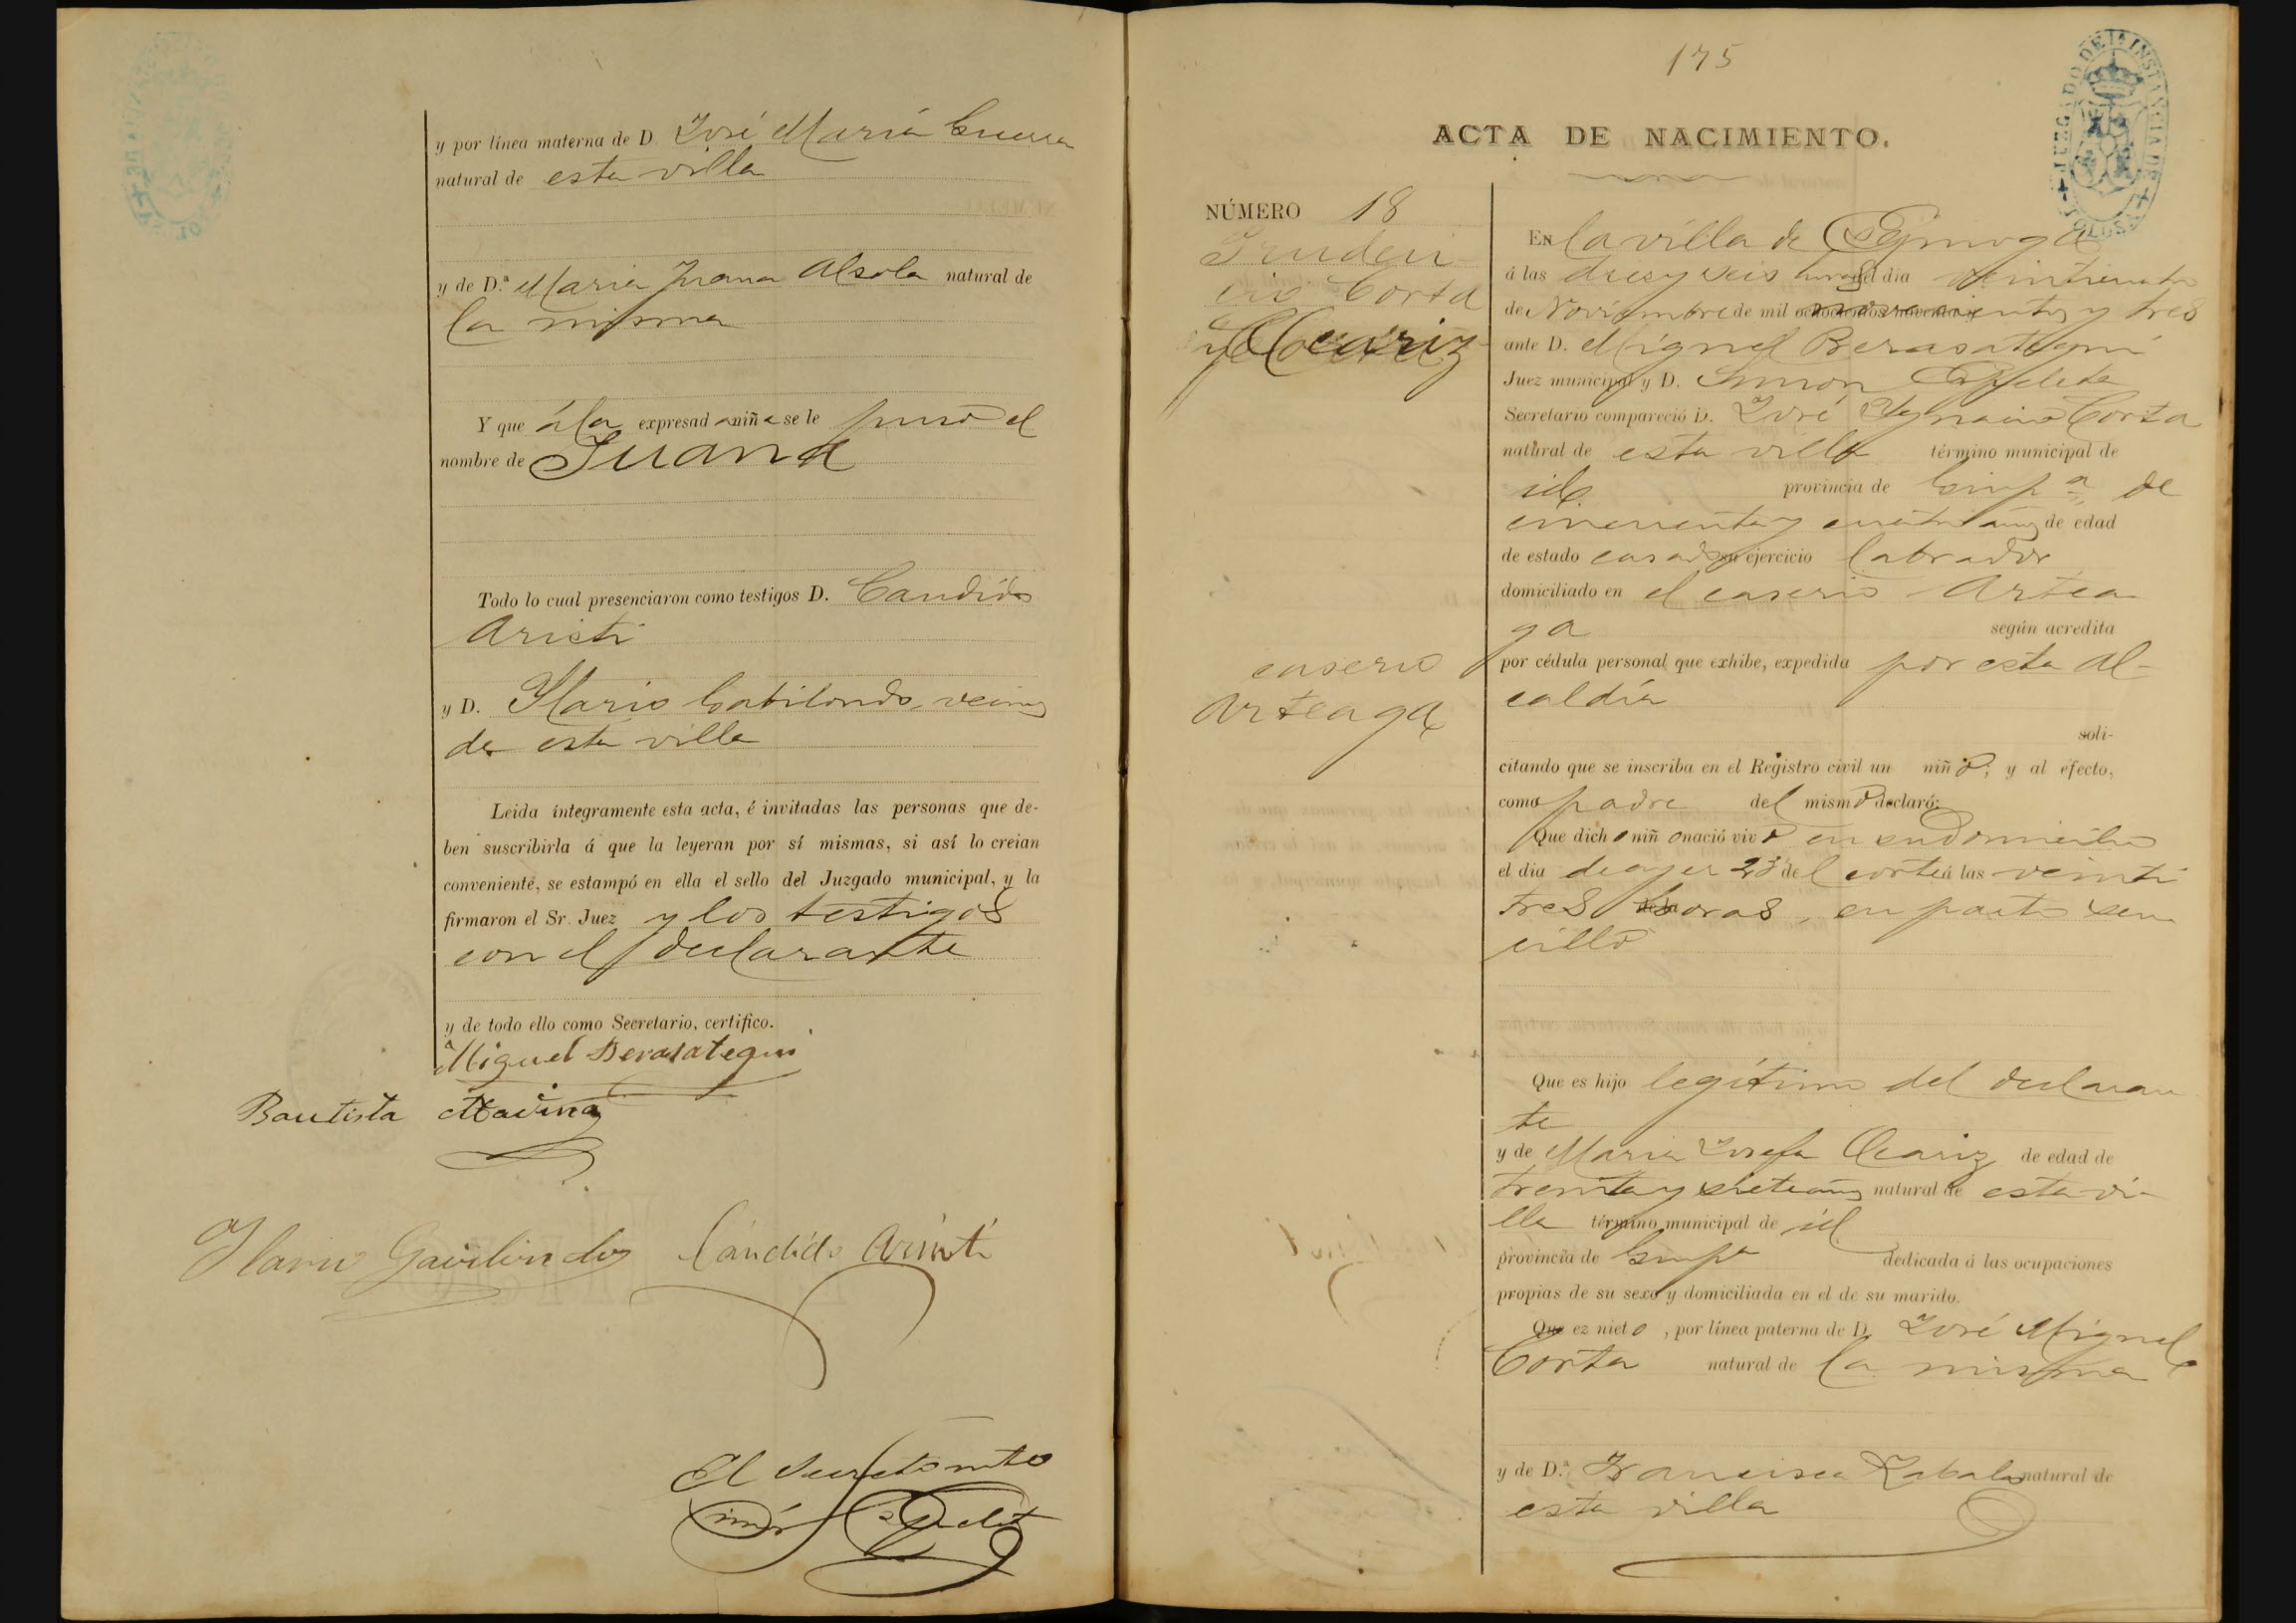 y por línea materna de D. José María Guerra
natural de esta villa
y de D.ª Maria Juana Alsola natural de
la misma
Y que á la expresada niña se le puso el
nombre de Juana
Todo lo cual presenciaron como testigos D. Candido
Aristi
y D. Ylario Gabilondo, vecinos
de esta villa
Leida íntegramente esta acta, é invitadas las personas que de-
ben suscribirla á que la leyeran por sí mismas, si así lo creian
conveniente, se estampó en ella el sello del Juzgado municipal, y la
firmaron el Sr. Juez y los testigos
con el declarante
y de todo ello como Secretario, certifico.
Miguel Berasategui
Bautista
Ylario Gavilondo Cándido Aristi
El Secretario
Simón Ezpeleta
175
ACTA DE NACIMIENTO.
JUZGADO DE 1ª INSTANCIA DE TOLOSA
NÚMERO 18
Pruden-
cio Corta
y Ocariz
caserio
Arteaga
En la villa de
á las diez y seis horas del dia veinticuatro
de Noviembre de mil novecientos y tres
ante D. Miguel Berasategui
Juez municipal y D. Simon Ezpeleta
Secretario compareció D. José Ygnacio Corta
natural de esta villa término municipal de
id. provincia de Guipª de
cincuenta y cuatro años de edad
de estado casado su ejercicio labrador
domiciliado en el caserio Artea-
ga según acredita
por cédula personal que exhibe, expedida por esta Al-
caldía
soli-
citando que se inscriba en el Registro civil un niño; y al efecto,
como padre del mismo declaró:
Que dicho niño nació vivo en su domicilio
el dia de ayer 23 del corte á las veinti
tres horas, en parto sen
cillo
Que es hijo legítimo del declaran
te
y de Maria Josefa Ocariz de edad de
treinta y siete años natural de esta vi-
lla término municipal de id.
provincia de Guipª dedicada á las ocupaciones
propias de su sexo y domiciliada en el de su marido.
Que ez nieto, por línea paterna de D. José Miguel
Corta natural de la misma
y de D.ª Francisca Zabala natural de
esta villa